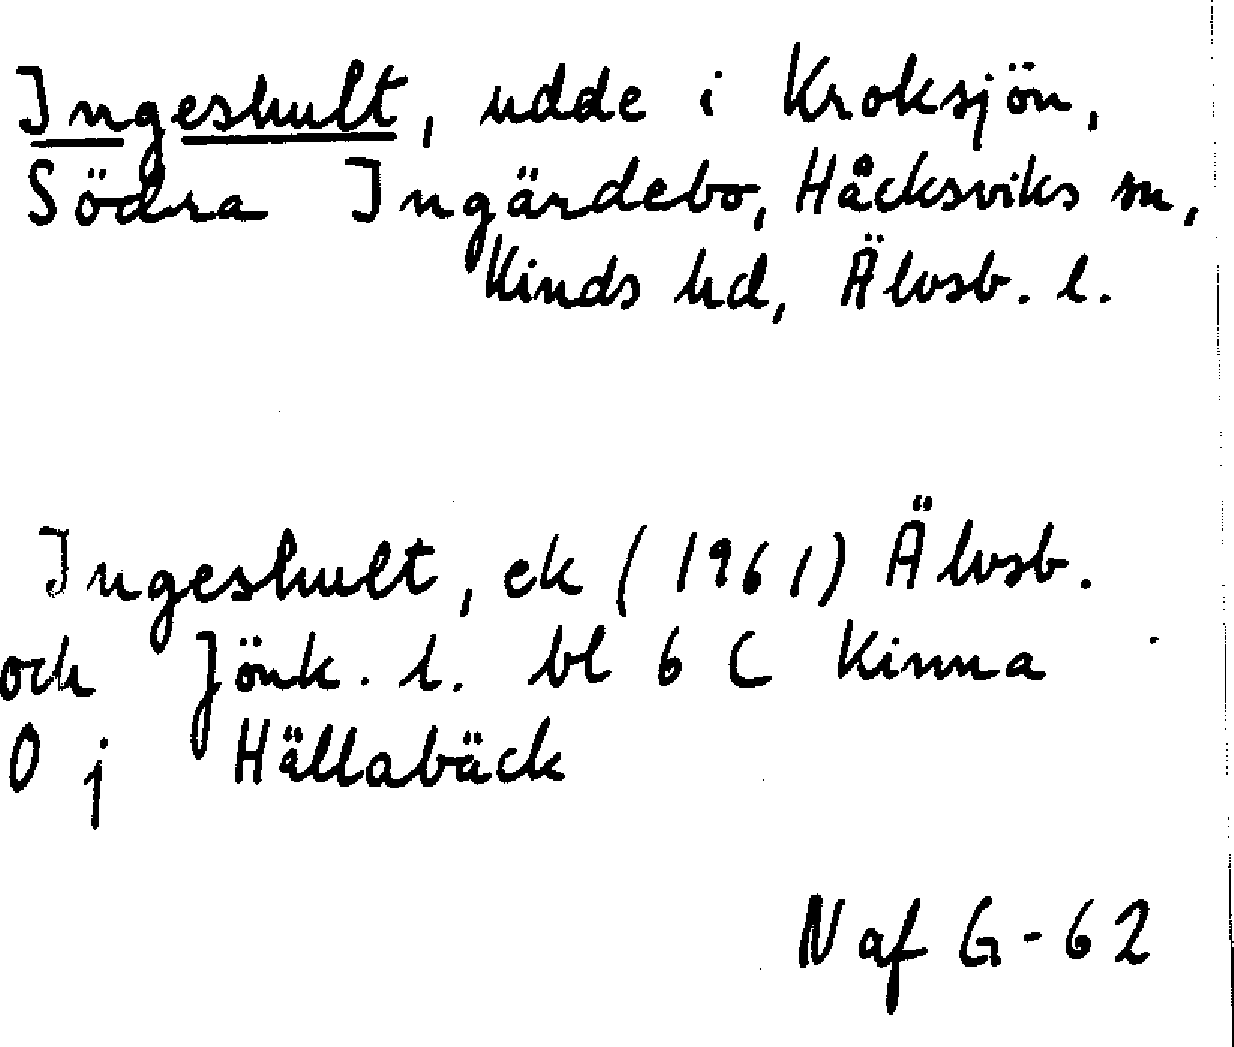 Ingeshult, udde i Kroksjön,
Södra Ingärdebo, Håcksviks sn,
Kinds hd, Älvsb. l.
Ingeshult, ek (1961) Älvsb.
och Jönk. l. bl 6 C Kinna
0 j Hällabäck
N af G-62